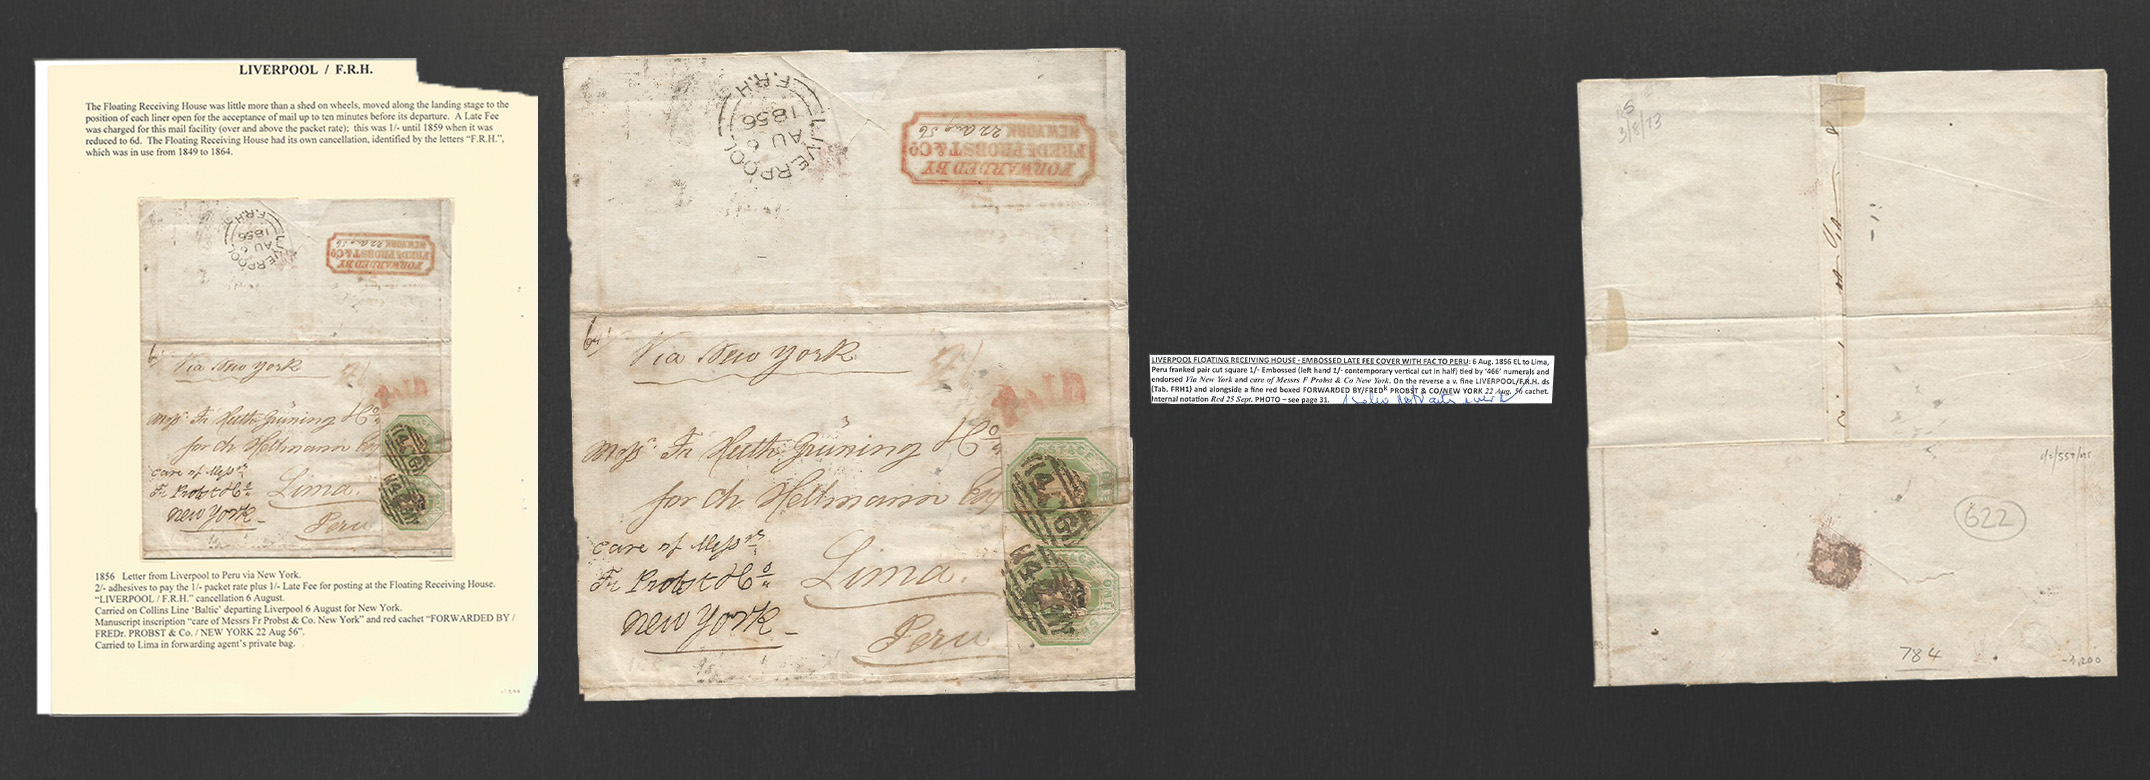 LIVERPOOL / F.R.H.
The Floating Receiving House was little more than a shed on wheels, moved along the landing stage to the
position of each liner open for the acceptance of mail up to ten minutes before its departure. A Late Fee
was charged for this mail facility (over and above the packet rate); this was 1/- until 1859 when it was
reduced to 6d. The Floating Receiving House had its own cancellation, identified by the letters "F.R.H.",
which was in use from 1849 to 1864.
LIVERPOOL
AU 6
1856
F.R.H
FORWARDED BY
FREDK PROBST & Co
NEW YORK 22 Aug 56
Via New York
Messrs Fr Huth Grüning & Co
for ch Hellmann Esq
care of Messrs
Fr Probst & Co
New York
Lima
Peru
1856 Letter from Liverpool to Peru via New York.
2/- adhesives to pay the 1/- packet rate plus 1/- Late Fee for posting at the Floating Receiving House.
"LIVERPOOL / F.R.H." cancellation 6 August.
Carried on Collins Line 'Baltic' departing Liverpool 6 August for New York.
Manuscript inscription "care of Messrs Fr Probst & Co. New York" and red cachet "FORWARDED BY /
FREDr. PROBST & Co. / NEW YORK 22 Aug 56".
Carried to Lima in forwarding agent's private bag.
LIVERPOOL
AU 6
1856
F.R.H
FORWARDED BY
FREDK PROBST & Co
NEW YORK 22 Aug 56
Via New York
Messrs Fr Huth Grüning & Co
for ch Hellmann Esq
care of Messrs
Fr Probst & Co
New York
Lima.
Peru
LIVERPOOL FLOATING RECEIVING HOUSE - EMBOSSED LATE FEE COVER WITH FAC TO PERU: 6 Aug. 1856 EL to Lima,
Peru franked pair cut square 1/- Embossed (left hand 1/- contemporary vertical cut in half) tied by '466' numerals and
endorsed Via New York and care of Messrs F Probst & Co New York. On the reverse a v. fine LIVERPOOL/F.R.H. ds
(Tab. FRH1) and alongside a fine red boxed FORWARDED BY/FREDK PROBST & CO/NEW YORK 22 Aug. 56 cachet.
Internal notation Rcd 25 Sept. PHOTO – see page 31.
3/8/73
622
784